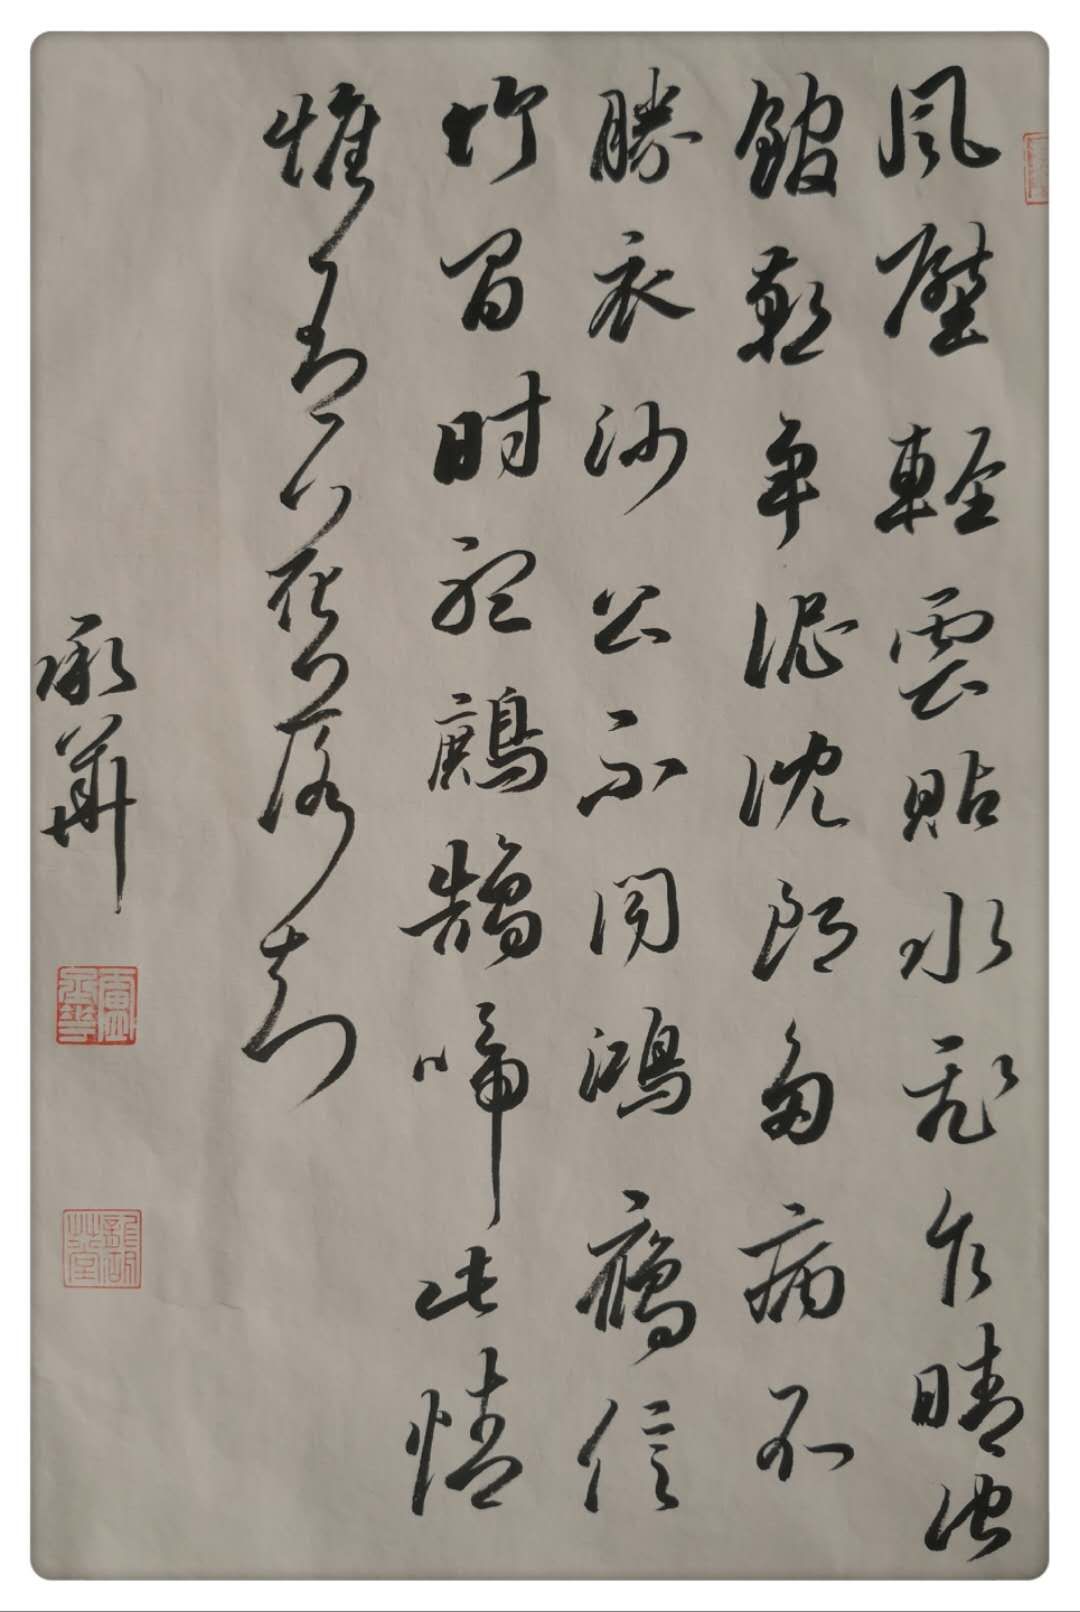 風壓輕雲貼水飛乍晴池
館燕爭泥沈郎多病不
勝衣沙上不聞鴻鴈信
竹間時聽鷓鴣啼此情
惟有落花知
承華